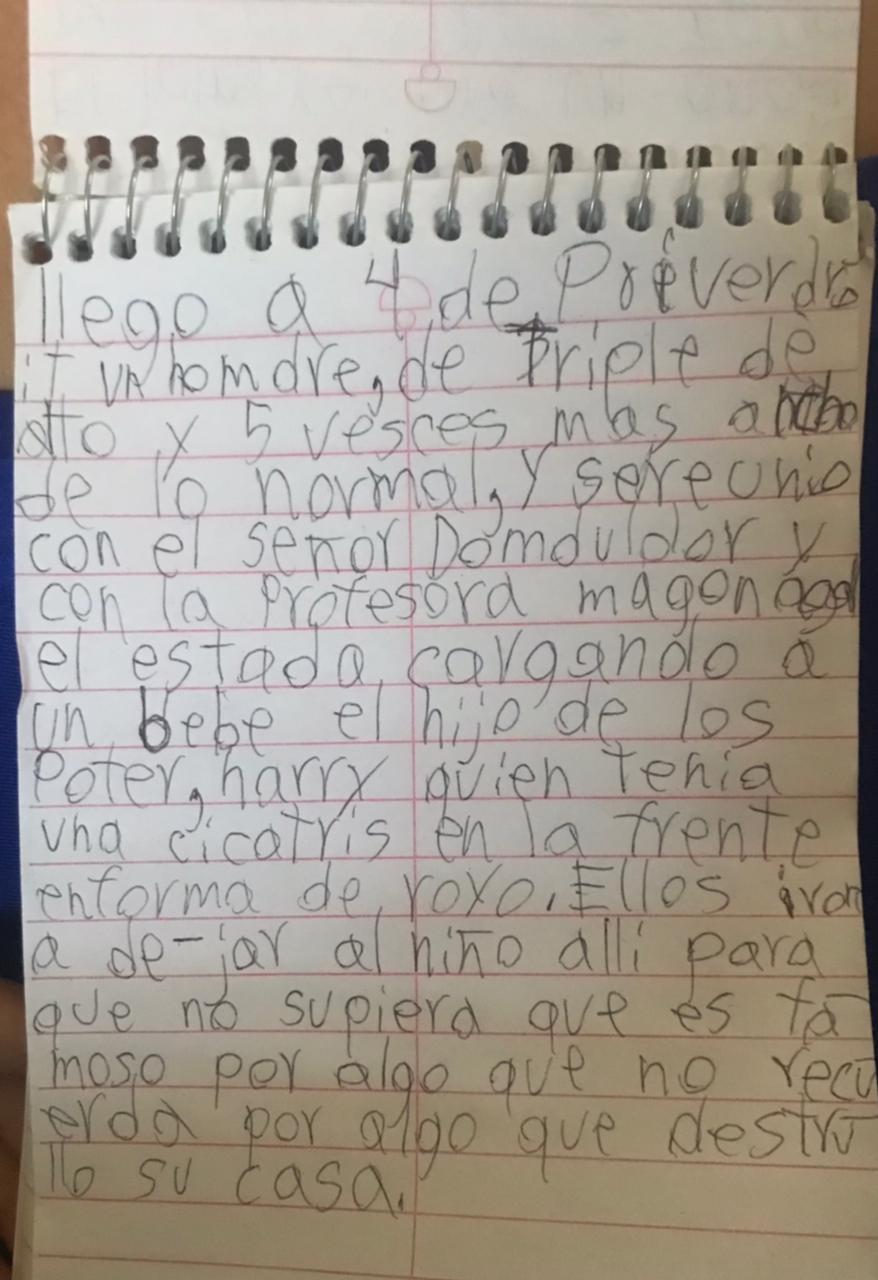 llego a 4, de Priverdra
it un homdre, de triple de
alto y 5 vesces mas ancho
de lo normal, y sereunio
con el señor Domduldor y
con la Profesora magonagal
el estada cargando a
un bebe el hijo de los
Poter, harry quien tenia
una cicatris en la frente
enforma de royo. Ellos iron
a de-jar al niño alli para
que no supiera que es fa
moso por algo que no recu
erda por algo que destru
llo su casa.